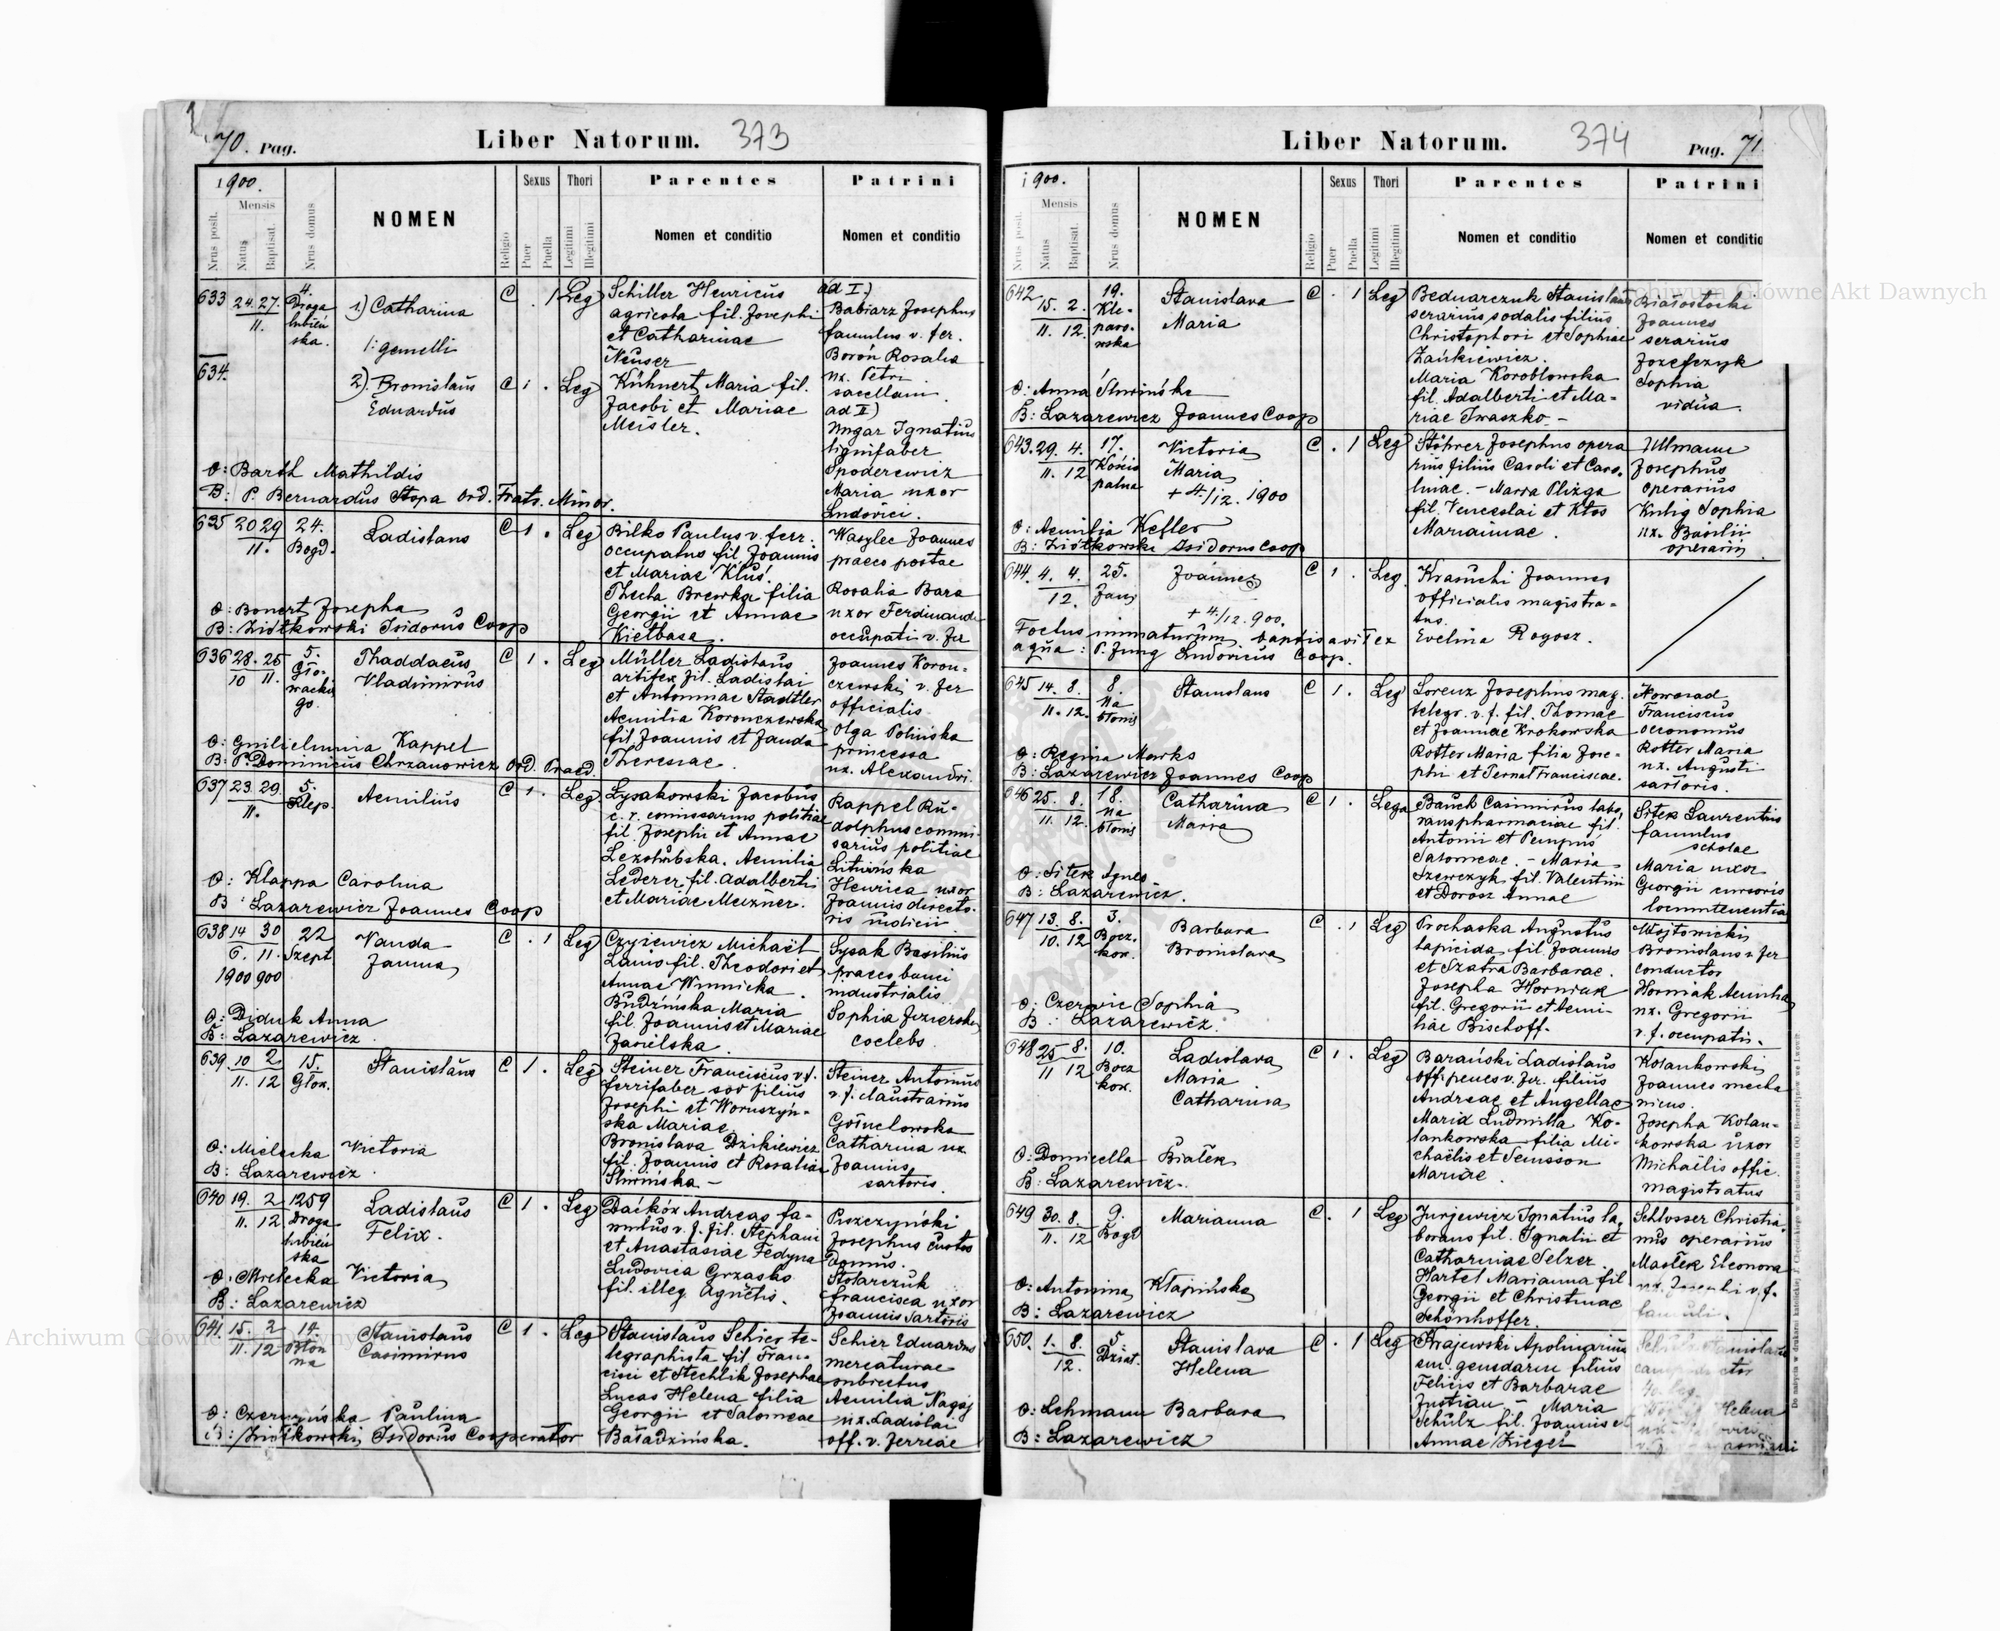 70. Pag.
Liber Natorum.
373
1900.
Nrus posit.
Mensis
Natus
Baptisat.
Nrus domus
NOMEN
Religio
Sexus
Puer
Puella
Thori
Legitimi
Illegitimi
Parentes
Nomen et conditio
Patrini
Nomen et conditio
633
24. 27.
11.
4.
Droga
lubień
ska.
1) Catharina
1: gemelli
C . 1 Leg
Schiller Henricus
agricola fil. Josephi
et Catharinae
Neuser
ad I)
Babiarz Josephus
famulus v. fer.
Boroń Rosalia
ux. Petri
sacellani.
634.
2). Bronislaus
Eduardus
C 1 . Leg
Kühnert Maria fil.
Jacobi et Mariae
Meisler.
ad II)
Ungar Ignatius
lignifaber
Spoderewicz
Maria uxor
Ludovici.
O: Barth Mathildis
B: P. Bernardus Stopa Ord. Frats. Minor.
635
20 29
11.
24.
Bogd.
Ladislaus
C 1 . Leg
Bilko Paulus v. ferr.
occupatus fil Joannis
et Mariae Kluś.
Thecla Brewka filia
Georgii et Annae
Kiełbasa.
Wasylec Joannes
praeco postae
Rosalia Bara
uxor Ferdinandi
occupati v. fer
O: Bonert Josepha
B: Ziółkowski Isidorus Coop
636
28. 25
10 11.
5.
Gło-
wacki
go.
Thaddaeus
Vladimirus
C 1 . Leg
Müller Ladislaus
artifex fil. Ladislai
et Antoninae Stadtler
Aemilia Koronczewska
fil Joannis et Janda
Theresiae.
Joannes Koron-
czewski v. fer
officialis
Olga Polińska
princessa
ux. Alexandri.
O: Guilielmina Kappel
B: P. Dominicus Chrzanowicz Ord. Praed.
637
23. 29.
11.
5.
Klep.
Aemilius
C 1 . Leg.
Łysakowski Jacobus
c. r. comissarius politiae
fil. Josephi et Annae
Lezohubska. Aemilia
Lederer fil. Adalberti
et Mariae Meixner.
Kappel Ru-
dolphus commi-
sarius politiae
Litwińska
Henrica uxor
Joannis directo-
ris iudicii
O: Klappa Carolina
B: Lazarewicz Joannes Coop
638
14 30
6. 11.
1900 900
22
Szept
Vanda
Janina
C . 1 Leg
Czyżewicz Michaël
Lanio fil. Theodori et
Annae Winnicka.
Budzińska Maria
fil. Joannis et Mariae
Zasielska.
Sysak Basilius
praeco banci
industrialis
Sophia Jezierska
coelebs.
O: Diduk Anna
B: Lazarewicz
639
10 2.
11. 12
15.
Głow.
Stanislaus
C 1 . Leg
Steiner Franciscus v. f.
ferrifaber sod filius
Josephi et Woruszyń-
ska Mariae.
Bronislava Dzikiewicz
fil. Joannis et Rosaliae
Śliwińska.-
Steiner Antonius
v. f. claustrarius
Catharina ux.
Joannis
sartoris.
O: Mielecka Victoria
B: Lazarewicz
640
19. 2
11. 12
1259
Droga
lubień
ska
Ladislaus
Felix.
C 1 . Leg
Daćków Andreas fa-
mulus v. f. fil. Stephani
et Anastasiae Fedyna
Ludovica Grzasko
fil. illeg. Agnetis.
Pszczyński
Josephus custos
Domus.
Stolarczuk
Francisca uxor
Joannis Sartoris
O: Mielecka Victoria
B: Lazarewicz
641.
15. 2
11. 12
14
Błon
na
Stanislaus
Casimirus
C 1 . Leg
Stanislaus Schier te-
legraphista fil. Fran-
cisci et Stechlik Josephae
Lucas Helena filia
Georgii et Salomeae
Basadzińska.
Schier Eduardus
mercaturae
subrectus
Aemilia Nagaj
ux. Ladislai
off. v. ferreae
O: Czerwińska Paulina
B: Ziółkowski Isidorus Cooperator
Liber Natorum.
374
Pag. 71.
1900.
Nrus posit.
Mensis
Natus
Baptisat.
Nrus domus
NOMEN
Religio
Sexus
Puer
Puella
Thori
Legitimi
Illegitimi
Parentes
Nomen et conditio
Patrini
Nomen et conditio
642
15. 2.
11. 12.
19.
Kle-
paro-
wska
Stanislava
Maria
C . 1 Leg
Bednarczuk Stanislaus
serarius sodalis filius
Christophori et Sophiae
Zankiewicz.
Maria Koroblowska
fil. Adalberti et Ma-
riae Iwaszko.-
Białostocki
Joannes
serarius
Jozefczyk
Sophia
vidua.
O: Anna Śliwińska
B: Lazarewicz Joannes Coop
643.
29. 4.
11. 12
17.
Kości
palna
Victoria
Maria
+ 4./12. 1900
C . 1 Leg
Stöhrer Josephus opera
rius filius Caroli et Caro-
linae. - Maria Plizga
fil. Venceslai et Ktos
Mariannae.
Ullmann
Josephus
operarius
Kulig Sophia
ux. Basilii
operarii
O: Aemilia Kefler
B: Ziółkowski Isidorus Coop
644.
4. 4.
12.
25.
Janj
Joannes
+ 4./12. 900.
C 1 . Leg.
Krasucki Joannes
officialis magistra-
tus.
Evelina Rogosz.
Foetus immaturum baptisavit ex
aqua: P. Jung Ludovicus Coop.
645
14. 8.
11. 12.
8.
Na
błonie
Stanislaus
C 1 . Leg
Lorenz Josephus mag.
telegr. v. f. fil. Thomae
et Joannae Krokowska
Rotter Maria filia Jose-
phi et Ternal Franciscae.
Nowosad
Franciscus
oeconomus
Rotter Maria
ux. Augusti
sartoris.
O: Regina Marks
B: Lazarewicz Joannes Coop
646
25. 8.
11. 12
18.
Na
błonie
Catharina
Maria
C 1 . Leg
Bauck Casimirus labo-
rans pharmaciae fil.
Antonii et Pempuś
Salomeae. - Maria
Szewczyk fil. Valentini
et Dorosz Annae
Sitek Laurentius
famulus
scholae
Maria uxor
Georgii cursoris
locumtenentiae
O: Sitek Agnes
B: Lazarewicz.
647
13. 8.
10. 12
3.
Bocz.
kow.
Barbara
Bronislava
C . 1 Leg
Prochaska Augustus
lapicida fil. Joannis
et Szatra Barbarae.
Josepha Horniak
fil. Gregorii et Aemi-
liae Bischoff.
Wojtowicki
Bronislaus v. fer
conductor
Horniak Aemilia
ux. Gregorii
v. f. occupati.
O: Czerwic Sophia
B: Lazarewicz.
648
25 8.
11 12
10.
Bocz
kow.
Ladislava
Maria
Catharina
C 1 . Leg
Barański Ladislaus
off penes v. fer. filius
Andreae et Angellae
Maria Ludmilla Ko-
lankowska filia Mi-
chaëlis et Semsson
Mariae.
Kolankowski
Joannes mecha
nicus.
Josepha Kolan-
kowska uxor
Michaëlis offic.
magistratus
O: Domicella Białek
B: Lazarewicz.
649
30. 8.
11. 12
9.
Bogd
Marianna
C . 1 Leg
Jurjewicz Ignatius la-
borans fil. Ignatii et
Catharinae Selzer
Hartel Marianna fil
Georgii et Christinae
Schönhoffer.
Schlosser Christia
nus operarius
Masłek Eleonora
ux. Josephi v. f.
famuli.
O: Antonina Kłapińska
B: Lazarewicz
650.
1. 8.
12.
5.
Dziat.
Stanislava
Helena
C . 1 Leg
Krajewski Apolinarius
em. gendarm filius
Felicis et Barbarae
Justian - Maria
Schulz fil. Joannis et
Annae Ziegel
Helena
O: Lehmann Barbara
B: Lazarewicz
Do nabycia w drukarni katolickiej J. Chęcińskiego w zabudowaniu OO. Bernardynów we Lwowie
Archiwum Główne Akt Dawnych
Archiwum Główne Akt Dawnych